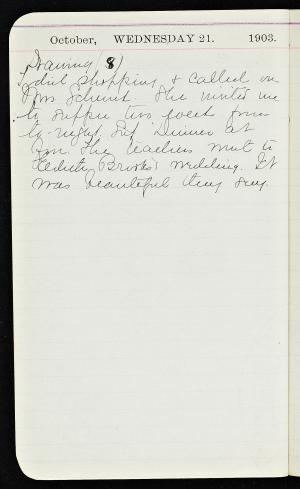 October, WEDNESDAY 21. 1903.
Drawing (8)
I did shopping & called on
Mrs Schmit. She invited me
to supper two weeks from
to-night. Sif Dinner at
Inn. The teachers went to
Edith Brooks' wedding. It
was beautiful they say.